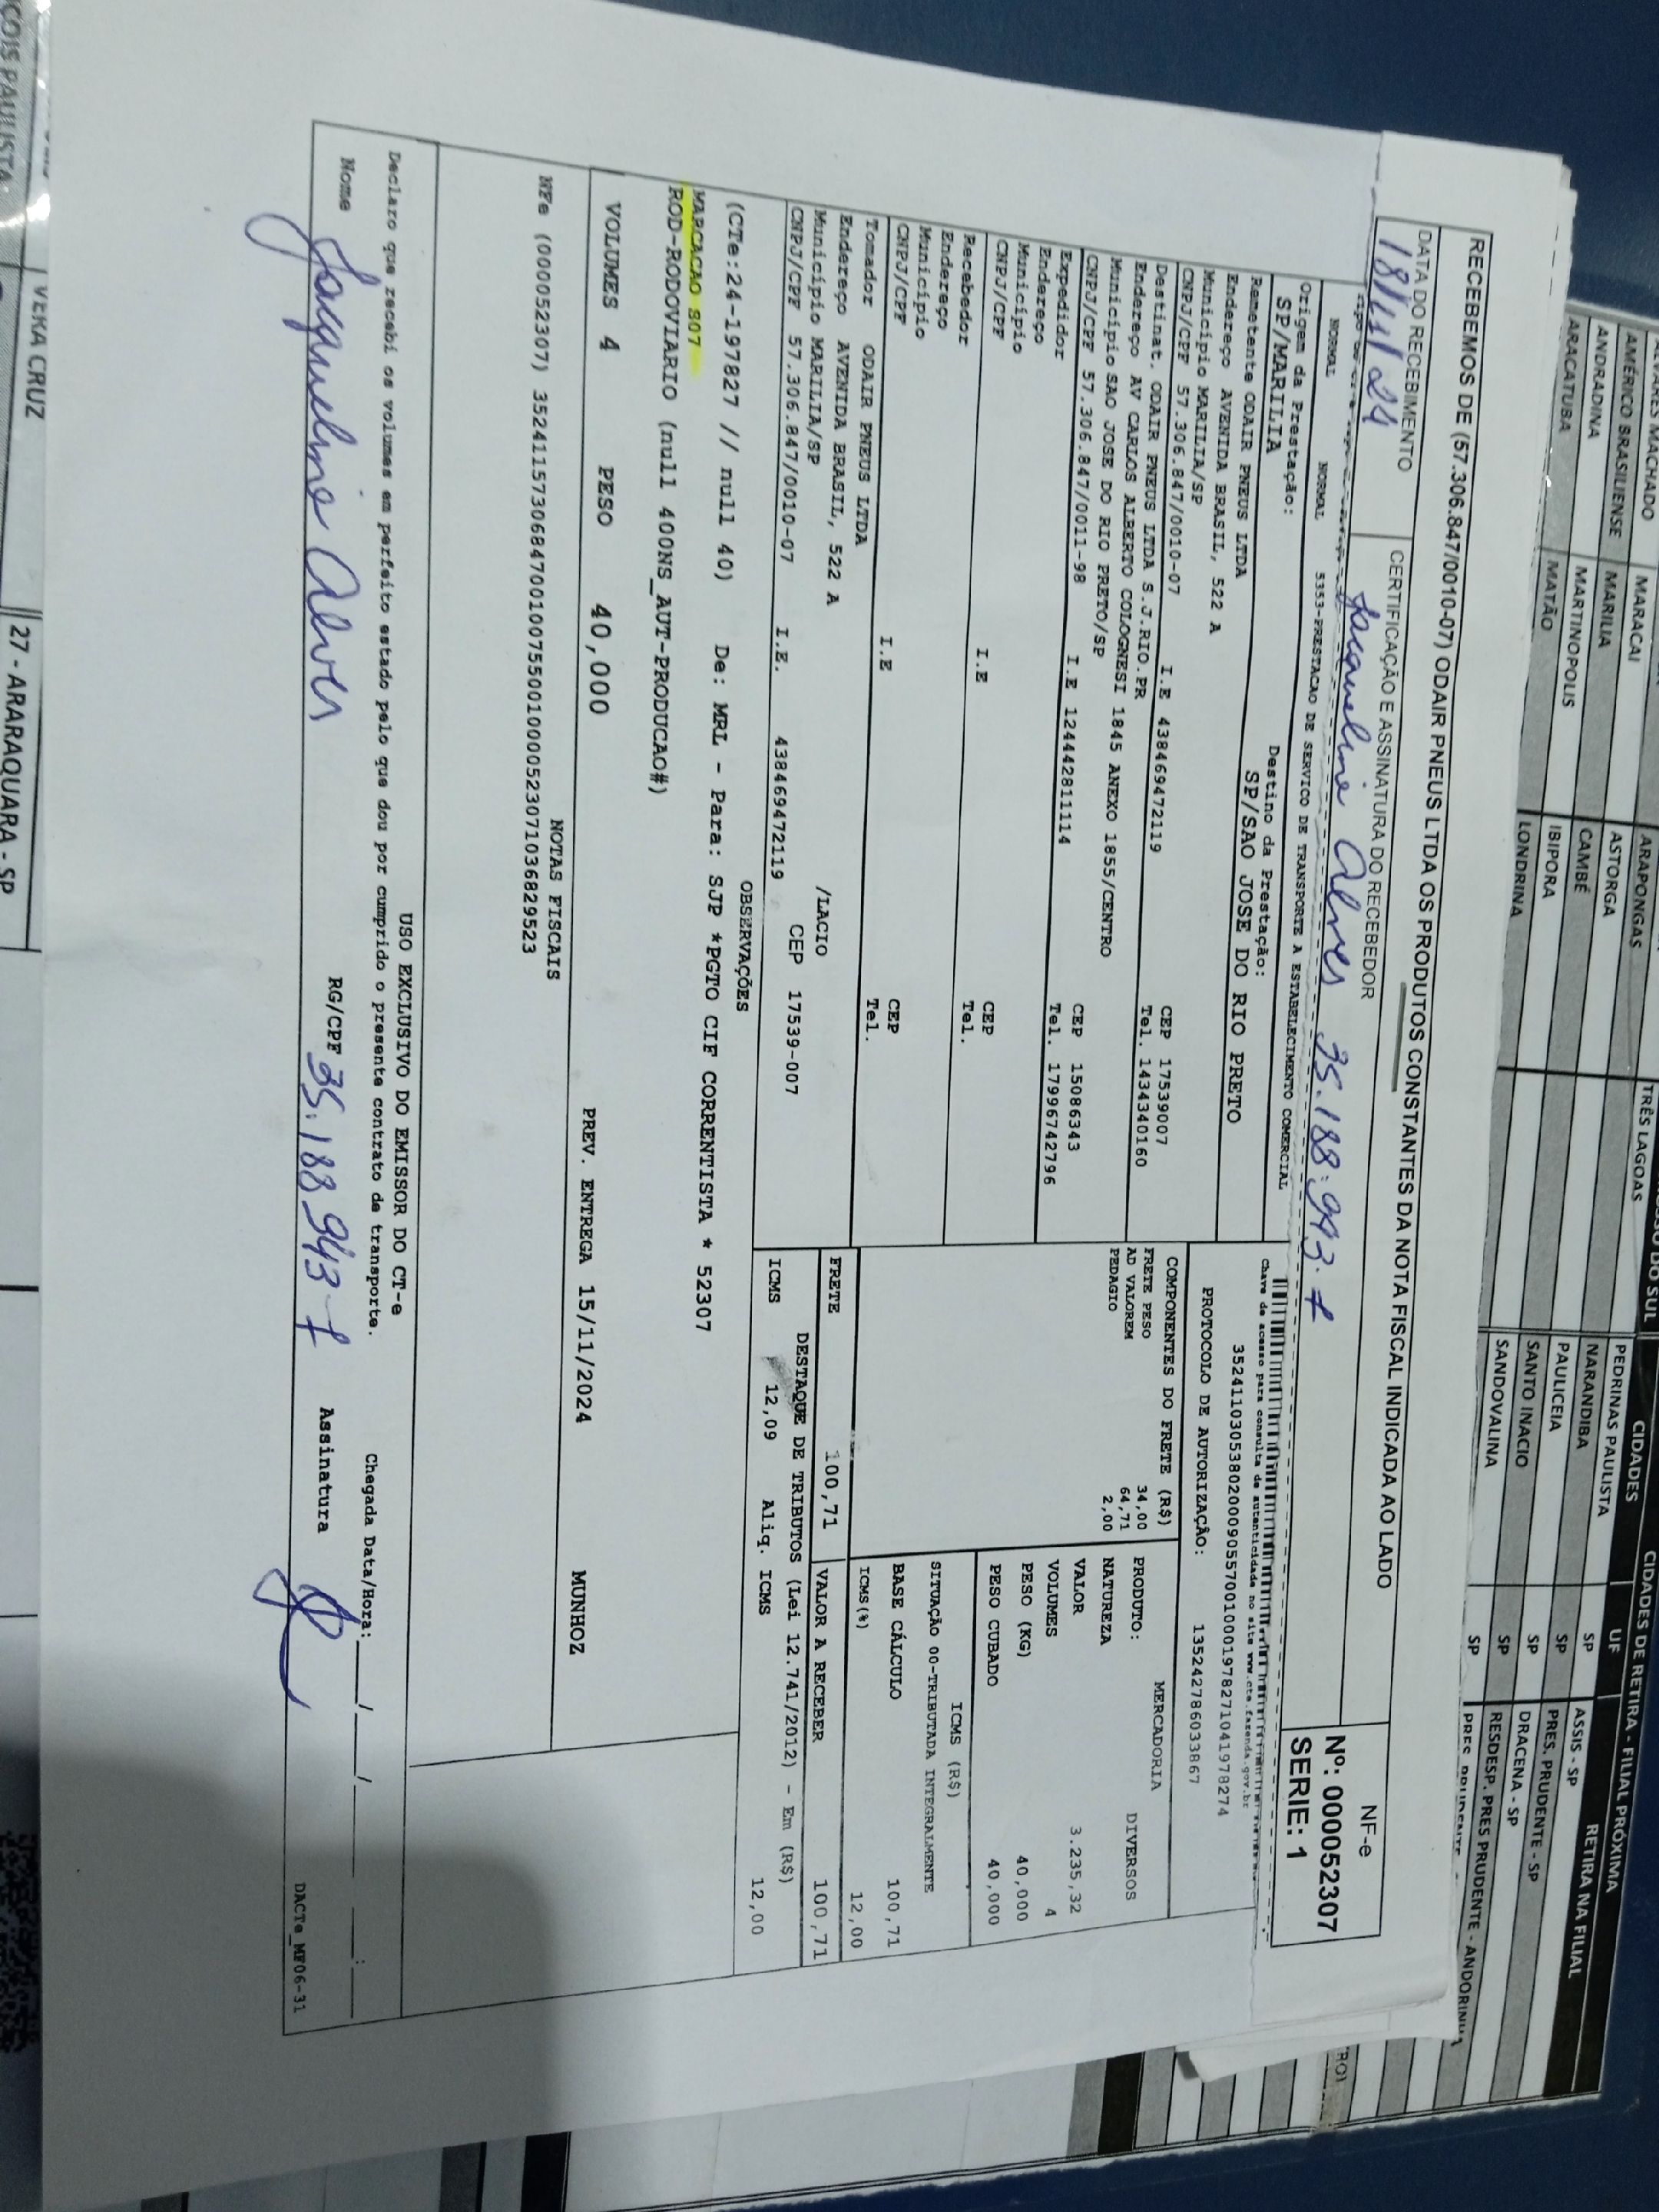 RECEBEMOS DE (57.306.847/0010-07) ODAIR PNEUS LTDA OS PRODUTOS CONSTANTES DA NOTA FISCAL INDICADA AO LADO
DATA DO RECEBIMENTO
18/11/24
CERTIFICAÇÃO E ASSINATURA DO RECEBEDOR
Jaqueline Alves 35.188.943-7
NF-e
Nº: 000052307
SERIE: 1
NORMAL NORMAL 5353-PRESTACAO DE SERVICO DE TRANSPORTE A ESTABELECIMENTO COMERCIAL
Origem da Prestação:
SP/MARILIA
Destino da Prestação:
SP/SAO JOSE DO RIO PRETO
Chave de acesso para consulta de autenticidade no site www.cte.fazenda.gov.br
35241103053802000905570010001978271041978274
PROTOCOLO DE AUTORIZAÇÃO: 135242786033867
Remetente ODAIR PNEUS LTDA
Endereço AVENIDA BRASIL, 522 A
Município MARILIA/SP CEP 17539007
CNPJ/CPF 57.306.847/0010-07 I.E 438469472119 Tel. 1434340160
Destinat. ODAIR PNEUS LTDA S.J.RIO.PR
Endereço AV CARLOS ALBERTO COLOGNESI 1845 ANEXO 1855/CENTRO
Município SAO JOSE DO RIO PRETO/SP CEP 15086343
CNPJ/CPF 57.306.847/0011-98 I.E 124442811114 Tel. 17996742796
Expedidor
Endereço
Município CEP
CNPJ/CPF I.E Tel.
Recebedor
Endereço
Município CEP
CNPJ/CPF I.E Tel.
Tomador ODAIR PNEUS LTDA
Endereço AVENIDA BRASIL, 522 A /LACIO
Município MARILIA/SP CEP 17539-007
CNPJ/CPF 57.306.847/0010-07 I.E. 438469472119
COMPONENTES DO FRETE (R$)
FRETE PESO 34,00
AD VALOREM 64,71
PEDAGIO 2,00
MERCADORIA
PRODUTO: DIVERSOS
NATUREZA
VALOR 3.235,32
VOLUMES 4
PESO (KG) 40,000
PESO CUBADO 40,000
ICMS (R$)
SITUAÇÃO 00-TRIBUTADA INTEGRALMENTE
BASE CÁLCULO 100,71
ICMS(%) 12,00
FRETE 100,71 VALOR A RECEBER 100,71
DESTAQUE DE TRIBUTOS (Lei 12.741/2012) - Em (R$)
ICMS 12,09 Aliq. ICMS 12,00
OBSERVAÇÕES
(CTe:24-197827 // null 40) De: MRL - Para: SJP *PGTO CIF CORRENTISTA * 52307
MARCACAO S07
ROD-RODOVIARIO (null 400NS_AUT-PRODUCAO#)
VOLUMES 4 PESO 40,000 PREV. ENTREGA 15/11/2024 MUNHOZ
NOTAS FISCAIS
NFe (000052307) 35241157306847001007550010000523071036829523
USO EXCLUSIVO DO EMISSOR DO CT-e
Declaro que recebi os volumes em perfeito estado pelo que dou por cumprido o presente contrato de transporte.
Chegada Data/Hora:____/____/____ ____:____
Nome Jaqueline Alves RG/CPF 35.188.943-7 Assinatura
DACTe_MF06-31
MACHADO
AMÉRICO BRASILIENSE
ANDRADINA
ARACATUBA
MARACAI
MARILIA
MARTINOPOLIS
MATÃO
ARAPONGAS
ASTORGA
CAMBÉ
IBIPORA
LONDRINA
DO SUL
TRÊS LAGOAS
CIDADES DE RETIRA - FILIAL PRÓXIMA
CIDADES UF RETIRA NA FILIAL
PEDRINAS PAULISTA SP ASSIS - SP
NARANDIBA SP PRES. PRUDENTE - SP
PAULICEIA SP DRACENA - SP
SANTO INACIO SP RESDESP. PRES PRUDENTE - ANDORINHA
SANDOVALINA SP
VERA CRUZ
PAULISTA
27 - ARARAQUARA - SP